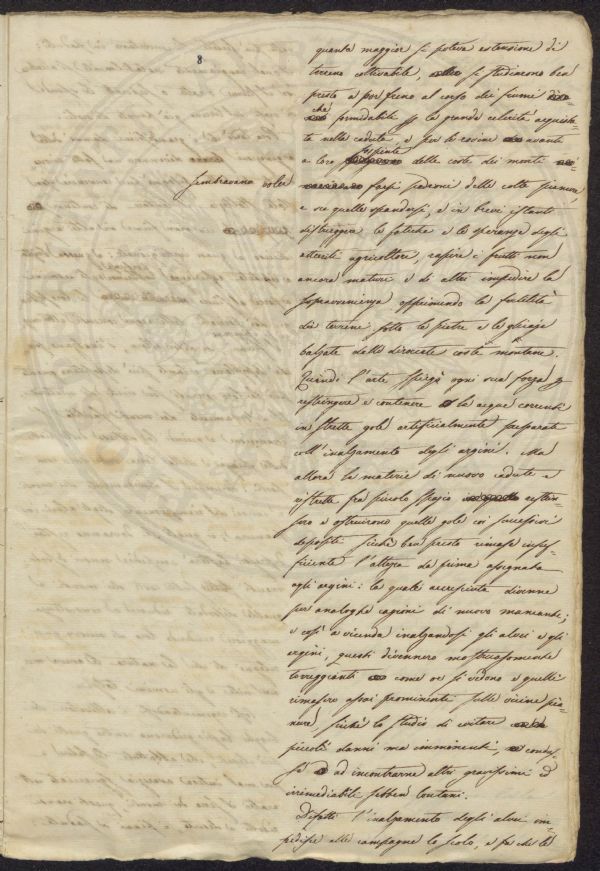 8
quanta maggior si poteva estensione di
terreno coltivabile, si studiarono ben
presto a por freno al corso dei fiumi
ché formidabili p la grande celerità acquista-
ta nella caduta e per le rovine avanti
a loro sospinte delle coste dei monti
sembravano voler
farsi padroni delle colte pianure,
e su quelle spandersi, e in brevi istanti
distruggere le fatiche e le speranze degli
atterriti agricoltori, rapire i frutti non
ancora maturi e di altri impedire la
sopravvenienza opprimendo la fertilità
dei terreni sotto le pietre e le ghiaje
balzate dalle diroccate coste montane.
Quindi l'arte spiegò ogni sua forza p
restringere e contenere le acque correnti
in strette gole artificialmente preparate
coll'inalzamento degli argini. Ma
allora le materie di nuovo cadute e
ristrette fra piccolo spazio
e ostruirono quelle gole coi successivi
depositi sicché ben presto rimase insuf-
ficiente l'altezza da prima assegnata
agli argini: la quale accresciuta divenne
per analoghe cagioni di nuovo mancante;
e così a vicenda inalzandosi gli alvei e gli
argini, questi divennero mostruosamente
torreggianti come or si vedono e quelli
rimasero assai prominenti sulle vicine pia-
nure, sicché lo studio di evitare
piccoli danni ma imminenti, condus-
se ad incontrarne altri gravissimi ed
irremediabili sebben lontani.
Difatti l'inalzamento degli alvei im-
pedisce alle campagne lo scolo, e fa che le